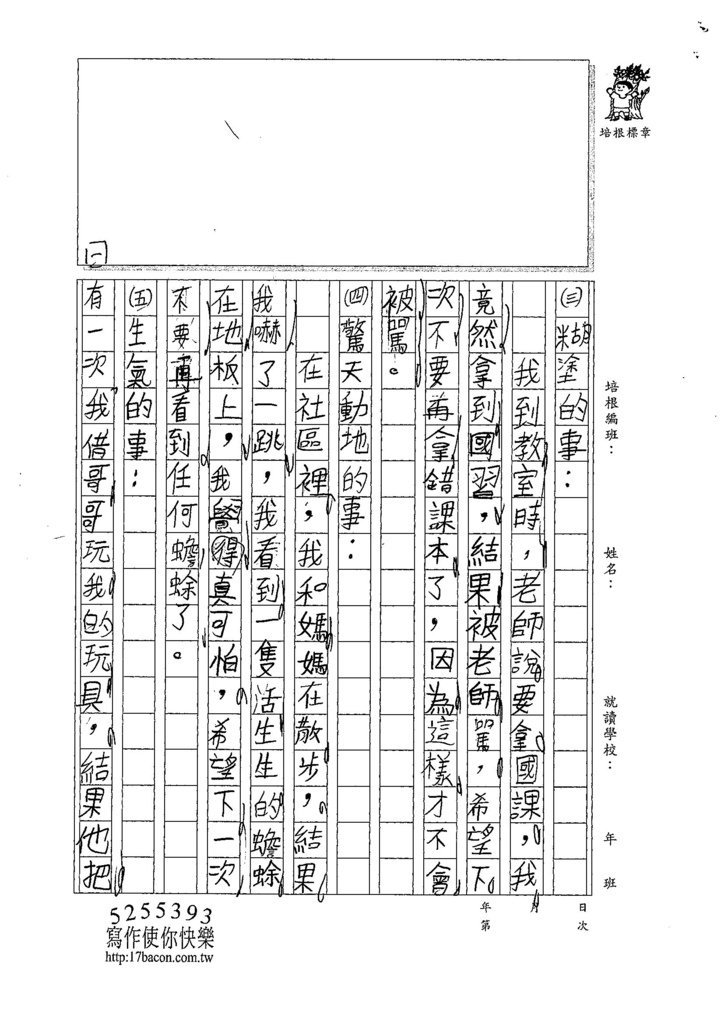 培根標章
培根編班：
姓名：
就讀學校：
年 班
㈢糊塗的事：
我到教室時，老師說要拿國課，我
竟然拿到國習，結果被老師罵，希望下
次不要再拿錯課本了，因為這樣才不會
被罵。
㈣驚天動地的事：
在社區裡，我和媽媽在散步，結果
我嚇了一跳，我看到一隻活生生的蟾蜍
在地板上，我覺得真可怕，希望下一次
不要再看到任何蟾蜍了。
㈤生氣的事：
有一次我借哥哥玩我的玩具，結果他把
年 月 日
第 次
5255393
寫作使你快樂
http:17bacon.com.tw